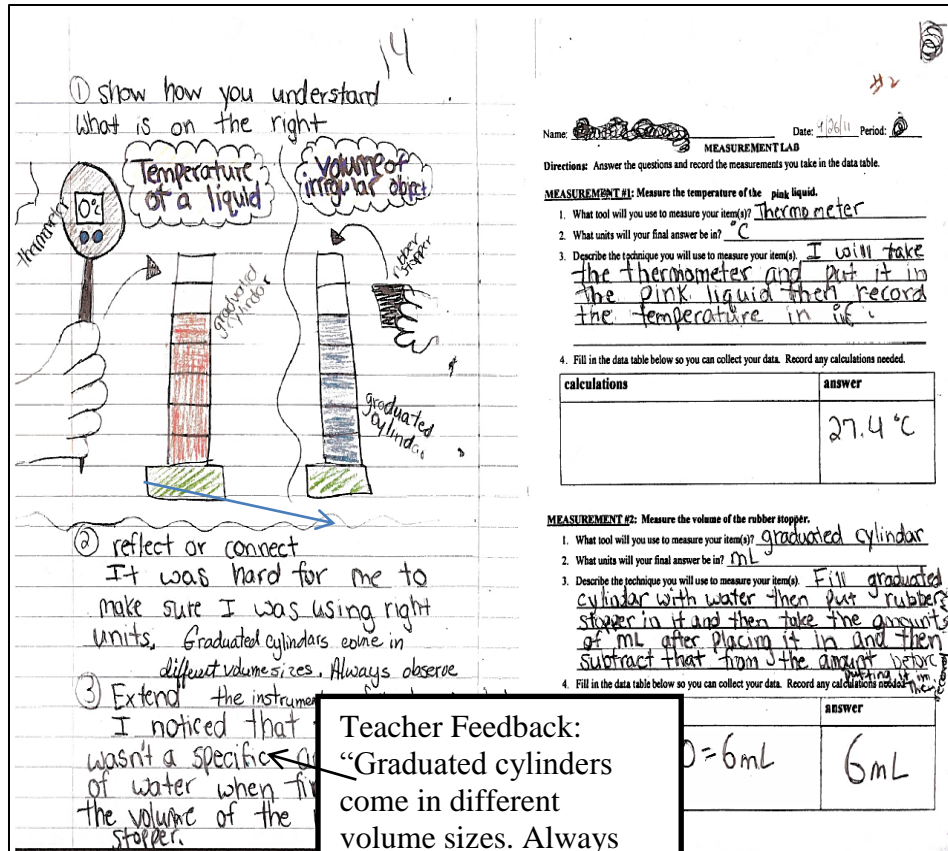 14
① show how you understand
What is on the right
Temperature
of a liquid
volume of
irregular object
thermometer
0°C
graduated
cylindar
rubber
stopper
graduated
cylindar
② reflect or connect
It was hard for me to
make sure I was using right
units. Graduated cylindars come in
different volume sizes. Always observe
③ Extend the instrume
I noticed that
wasn't a specific
of water when fin
the volume of the
stopper.
Teacher Feedback:
“Graduated cylinders
come in different
volume sizes. Always
#2
Name: Date: 9/26/11 Period:
MEASUREMENT LAB
Directions: Answer the questions and record the measurements you take in the data table.
MEASUREMENT #1: Measure the temperature of the pink liquid.
1. What tool will you use to measure your item(s)? Thermometer
2. What units will your final answer be in? °C
3. Describe the technique you will use to measure your item(s). I will take
the thermometer and put it in
the pink liquid then record
the temperature in
4. Fill in the data table below so you can collect your data. Record any calculations needed.
calculations answer
27.4 °C
MEASUREMENT #2: Measure the volume of the rubber stopper.
1. What tool will you use to measure your item(s)? graduated cylindar
2. What units will your final answer be in? mL
3. Describe the technique you will use to measure your item(s). Fill graduated
cylindar with water then put rubber
stopper in it and then take the amount
of mL after placing it in and then
subtract that from the amount before
putting it in.
4. Fill in the data table below so you can collect your data. Record any calculations needed.
answer
0=6mL 6mL